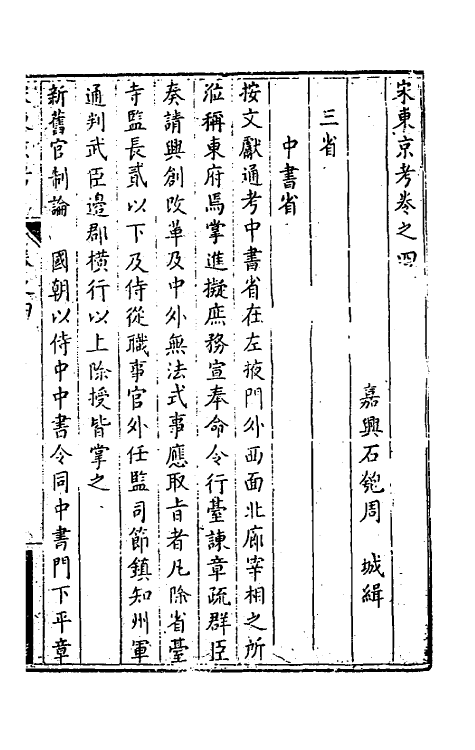 宋東京考卷之四
嘉興石匏周 城緝
三省
中書省
按文獻通考中書省在左掖門外西面北廊宰相之所
涖稱東府焉掌進擬庶務宣奉命令行臺諫章疏群臣
奏請興創改革及中外無法式事應取㫖者凡除省臺
寺監長貳以下及侍從職事官外任監司節鎮知州軍
通判武臣邊郡橫行以上除授皆掌之
新舊官制論 國朝以侍中中書令同中書門下平章